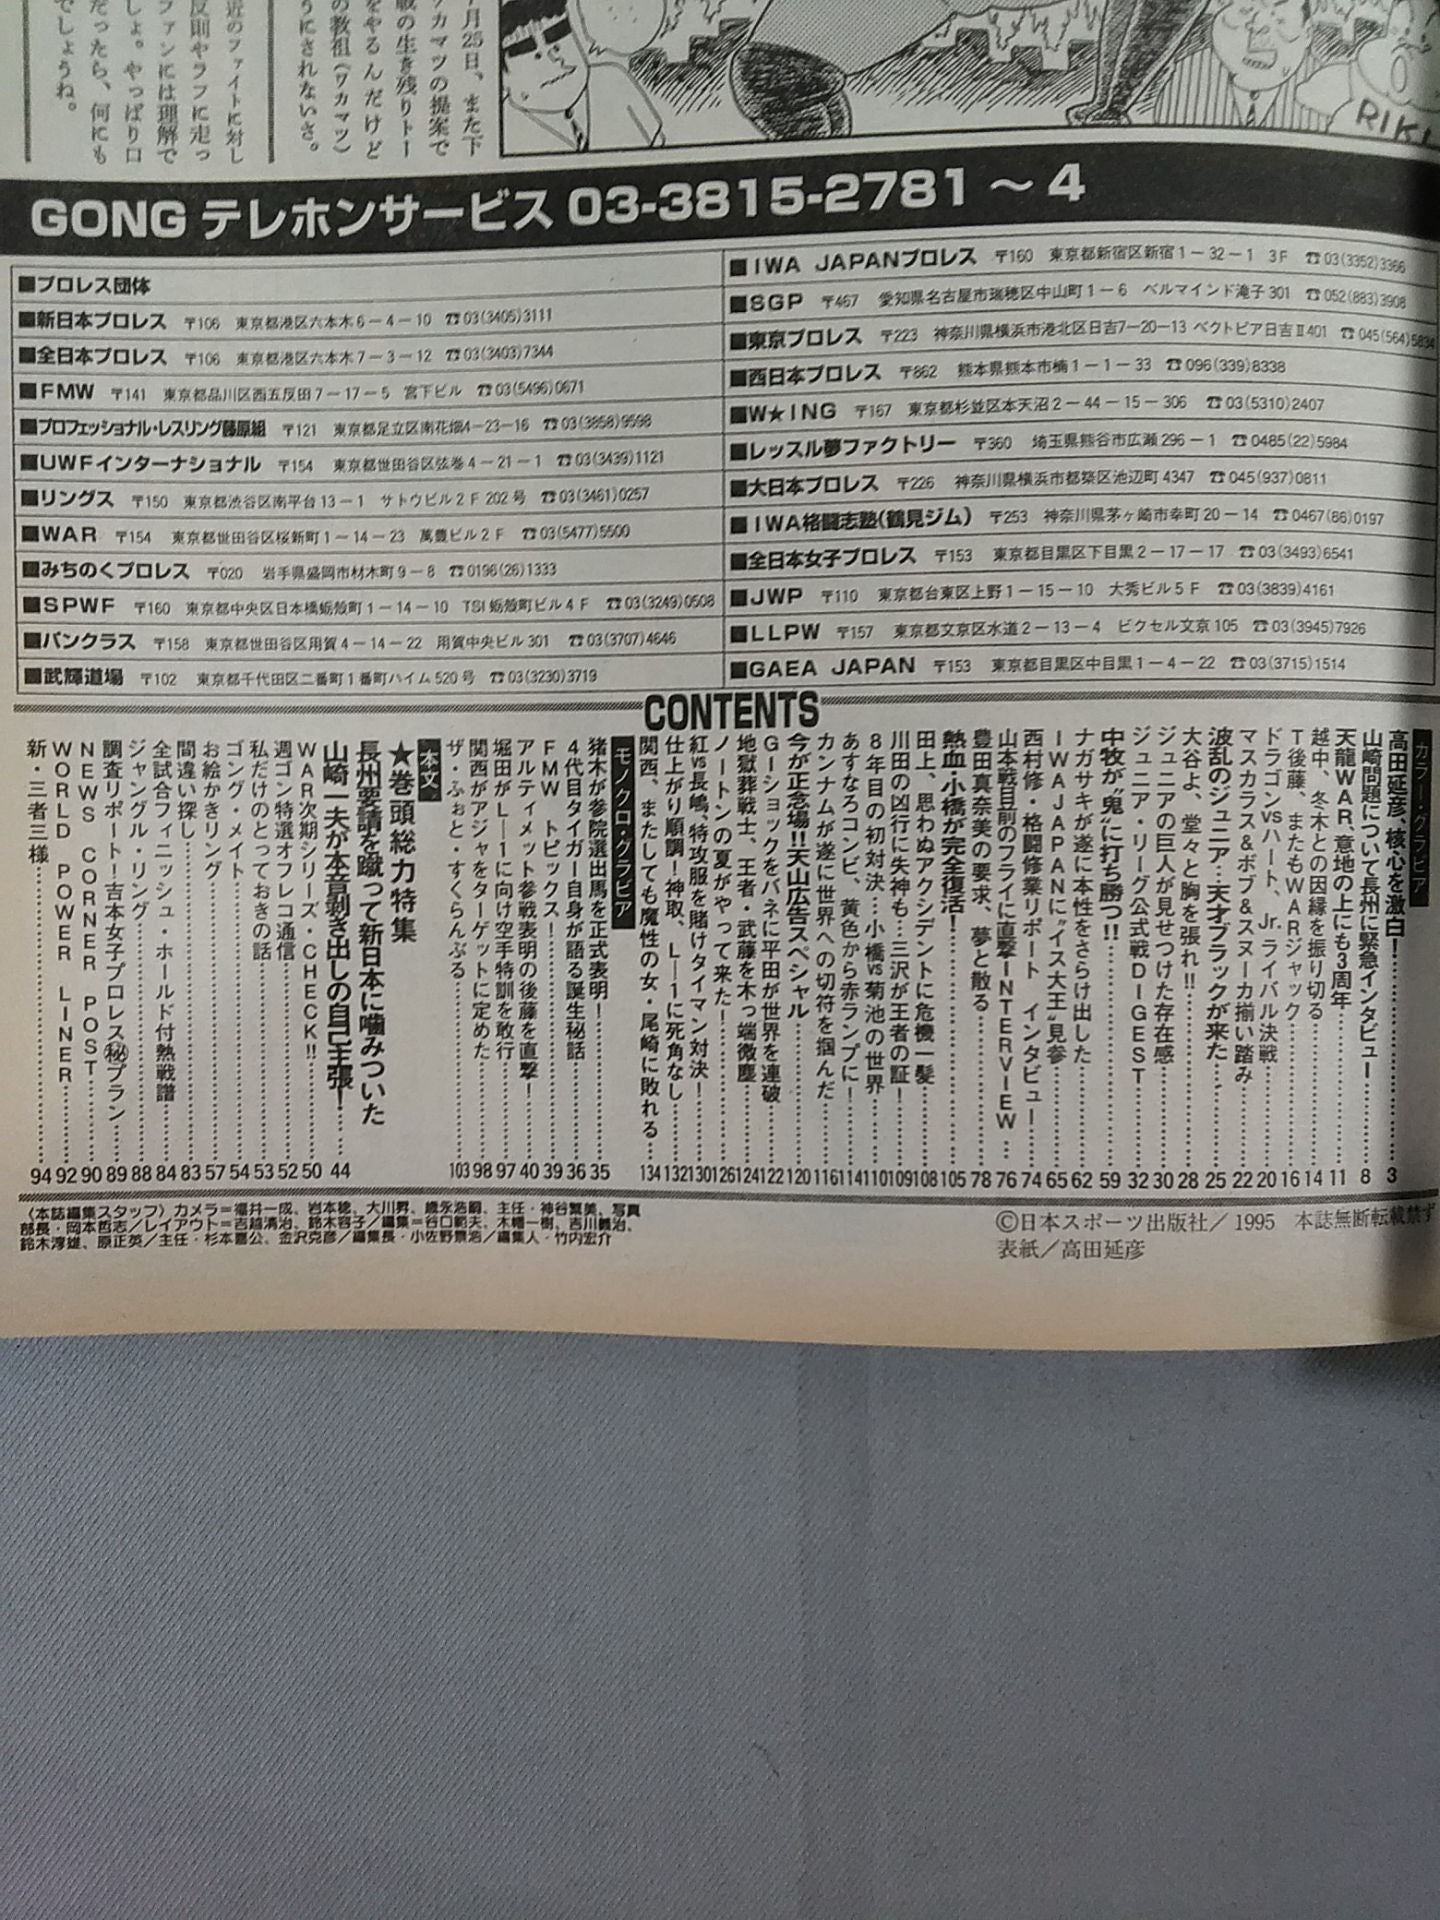 近のファイトに対し
反則やラフに走っ
ファンには理解で
しょ。やっぱり口
だったら、何にも
でしょうね。
月25日、また下
カマツの提案で
戦の生き残りトー
をやるんだけど
の教祖（ワカマツ）
うにされないさ。
RIKI
GONG テレホンサービス 03-3815-2781～4
■プロレス団体
■新日本プロレス 〒106 東京都港区六本木6－4－10 ☎03(3405)3111
■全日本プロレス 〒106 東京都港区六本木7－3－12 ☎03(3403)7344
■FMW 〒141 東京都品川区西五反田7－17－5 宮下ビル ☎03(5496)0671
■プロフェッショナル・レスリング藤原組 〒121 東京都足立区南花畑4-23-16 ☎03(3858)9598
■UWFインターナショナル 〒154 東京都世田谷区弦巻4－21－1 ☎03(3439)1121
■リングス 〒150 東京都渋谷区南平台13－1 サトウビル2F 202号 ☎03(3461)0257
■WAR 〒154 東京都世田谷区桜新町1－14－23 萬豊ビル2F ☎03(5477)5500
■みちのくプロレス 〒020 岩手県盛岡市材木町9－8 ☎0196(26)1333
■SPWF 〒160 東京都中央区日本橋蛎殻町1－14－10 TSI蛎殻町ビル4F ☎03(3249)0508
■パンクラス 〒158 東京都世田谷区用賀4－14－22 用賀中央ビル301 ☎03(3707)4646
■武輝道場 〒102 東京都千代田区二番町1番町ハイム520号 ☎03(3230)3719
■IWA JAPANプロレス 〒160 東京都新宿区新宿1－32－1 3F ☎03(3352)3366
■SGP 〒467 愛知県名古屋市瑞穂区中山町1－6 ベルマインド滝子301 ☎052(883)3908
■東京プロレス 〒223 神奈川県横浜市港北区日吉7-20-13 ベクトピア日吉Ⅱ401 ☎045(564)5834
■西日本プロレス 〒862 熊本県熊本市楠1－1－33 ☎096(339)8338
■W★ING 〒167 東京都杉並区本天沼2－44－15－306 ☎03(5310)2407
■レッスル夢ファクトリー 〒360 埼玉県熊谷市広瀬296－1 ☎0485(22)5984
■大日本プロレス 〒226 神奈川県横浜市都築区池辺町4347 ☎045(937)0811
■IWA格闘志塾（鶴見ジム） 〒253 神奈川県茅ヶ崎市幸町20－14 ☎0467(86)0197
■全日本女子プロレス 〒153 東京都目黒区下目黒2－17－17 ☎03(3493)6541
■JWP 〒110 東京都台東区上野1－15－10 大秀ビル5F ☎03(3839)4161
■LLPW 〒157 東京都文京区水道2－13－4 ビクセル文京105 ☎03(3945)7926
■GAEA JAPAN 〒153 東京都目黒区中目黒1－4－22 ☎03(3715)1514
CONTENTS
カラー・グラビア
高田延彦、核心を激白！……3
山崎問題について長州に緊急インタビュー……8
天龍WAR、意地の上にも3周年……11
越中、冬木との因縁を振り切る……14
T後藤、またもWARジャック……16
ドラゴンvsハート、Jr.ライバル決戦……20
マスカラス&ボブ&スヌーカ揃い踏み……22
波乱のジュニア…天才ブラックが来た……25
大谷よ、堂々と胸を張れ!!……28
ジュニアの巨人が見せつけた存在感……30
ジュニア・リーグ公式戦DIGEST……32
中牧が“鬼”に打ち勝つ!!……59
ナガサキが遂に本性をさらけ出した……62
IWAJAPANに“イス大王”見参……65
西村修・格闘修業リポート インタビュー……74
山本戦目前のフライに直撃―INTERVIEW……76
豊田真奈美の要求、夢と散る……78
熱血・小橋が完全復活！……105
田上、思わぬアクシデントに危機一髪……108
川田の凶行に失神も…三沢が王者の証！……109
8年目の初対決…小橋vs菊池の世界……110
あすなろコンビ、黄色から赤ランプに！……114
カンナムが遂に世界への切符を掴んだ……116
今が正念場!!天山広吉スペシャル……120
G―ショックをバネに平田が世界を連破……122
地獄葬戦士、王者・武藤を木っ端微塵……124
ノートンの夏がやって来た！……126
紅vs長嶋、特攻服を賭けタイマン対決！……130
仕上がり順調！神取、L―1に死角なし……132
関西、またしても魔性の女・尾崎に敗れる……134
モノクロ・グラビア
猪木が参院選出馬を正式表明！……35
4代目タイガー自身が語る誕生秘話……36
FMW トピックス！……39
アルティメット参戦表明の後藤を直撃！……40
堀田がL―1に向け空手特訓を敢行……97
関西がアジャをターゲットに定めた……98
ザ・ふぉと・すくらんぶる……103
本文
★巻頭総力特集
長州要請を蹴って新日本に噛みついた
山崎一夫が本音剥き出しの自己主張！……44
WAR次期シリーズ・CHECK!!……50
週ゴン特選オフレコ通信……52
私だけのとっておきの話……53
ゴング・メイト……54
お絵かきリング……57
間違い探し……83
全試合フィニッシュ・ホールド付熱戦譜……84
ジャングル・リング……88
調査リポート！吉本女子プロレス㊙プラン……89
NEWS CORNER POST……90
WORLD POWER LINER……92
新・三者三様……94
〈本誌編集スタッフ〉カメラ＝福井一成、岩本稔、大川昇、歳永浩嗣、主任・神谷繁美、写真
部長・岡本哲志／レイアウト＝吉越清治、鈴木容子／編集＝谷口範夫、木幡一樹、吉川義治、
鈴木淳雄、原正英／主任・杉本喜公、金沢克彦／編集長・小佐野景浩／編集人・竹内宏介
©日本スポーツ出版社／1995 本誌無断転載禁ず
表紙／高田延彦